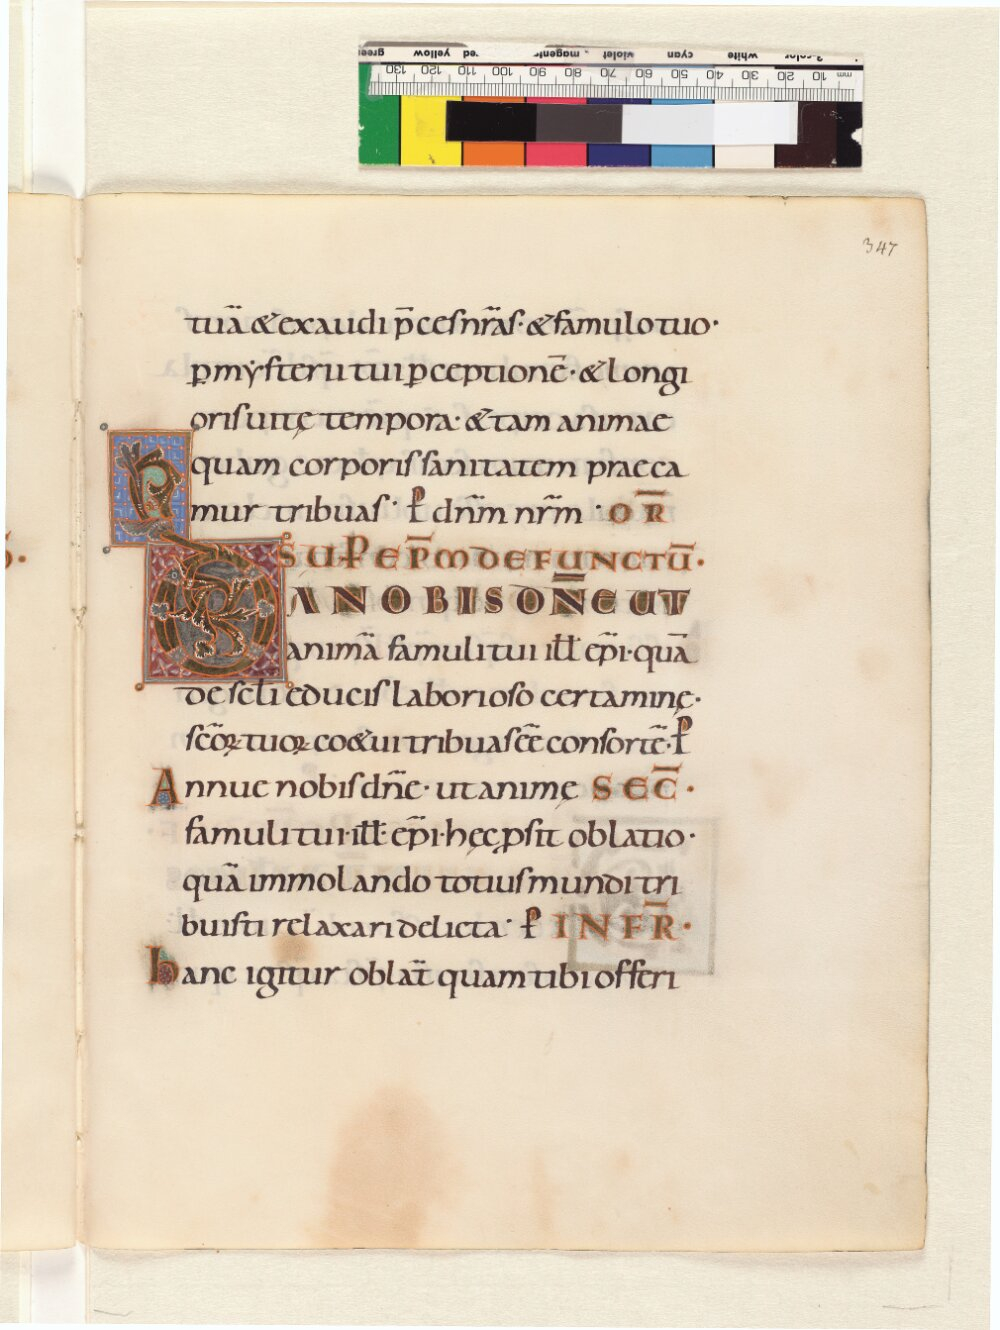 347
tuā & exaudi p̄ces nr̄as · & famulo tuo ·
ꝑ mẏsterii tui ꝑceptionē · & longi
oris uitę tempora · & tam animae
quam corporis sanitatem praeca
mur tribuas · P̄ dn̄m nr̄m · OR̄
SUPER EP̄M DEFUNCTŪ ·
DA NOBIS DN̄E UT
animā famuli tui ill̄ ep̄i · quā
de sc̄li educis laborioso certamine ·
sc̄oꝝ tuoꝝ coę̄tui tribuas eē consortē · P̄
Annue nobis dn̄e · ut animę SEC̄ ·
famuli tui · ill̄ · ep̄i · hęc ꝓsit oblatio ·
quā immolando totius mundi tri
buisti relaxari delicta · P̄ INFR̄ ·
hanc igitur oblat̄ quam tibi offeri